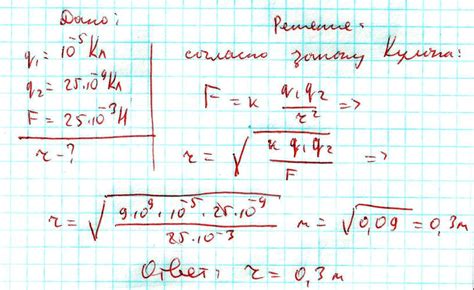 Дано:
q₁ = 10⁻⁵ Кл
q₂ = 25·10⁻⁹ Кл
F = 25·10⁻³ Н
r - ?
Решение:
согласно закону Кулона:
F = к q₁q₂/r² =>
r = √(к q₁q₂/F) =>
r = √(9·10⁹·10⁻⁵·25·10⁻⁹/25·10⁻³) м = √0,09 = 0,3 м
Ответ: r = 0,3 м